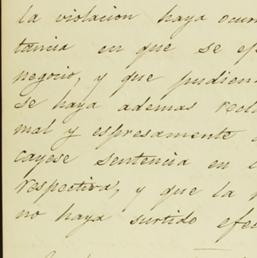 la violacion haya ocur
tancia en que se ef
negocio, y que pudien
se haya ademas recl
mal y espresamente
cayese sentencia en
respectiva, y que la
no haya surtido efec